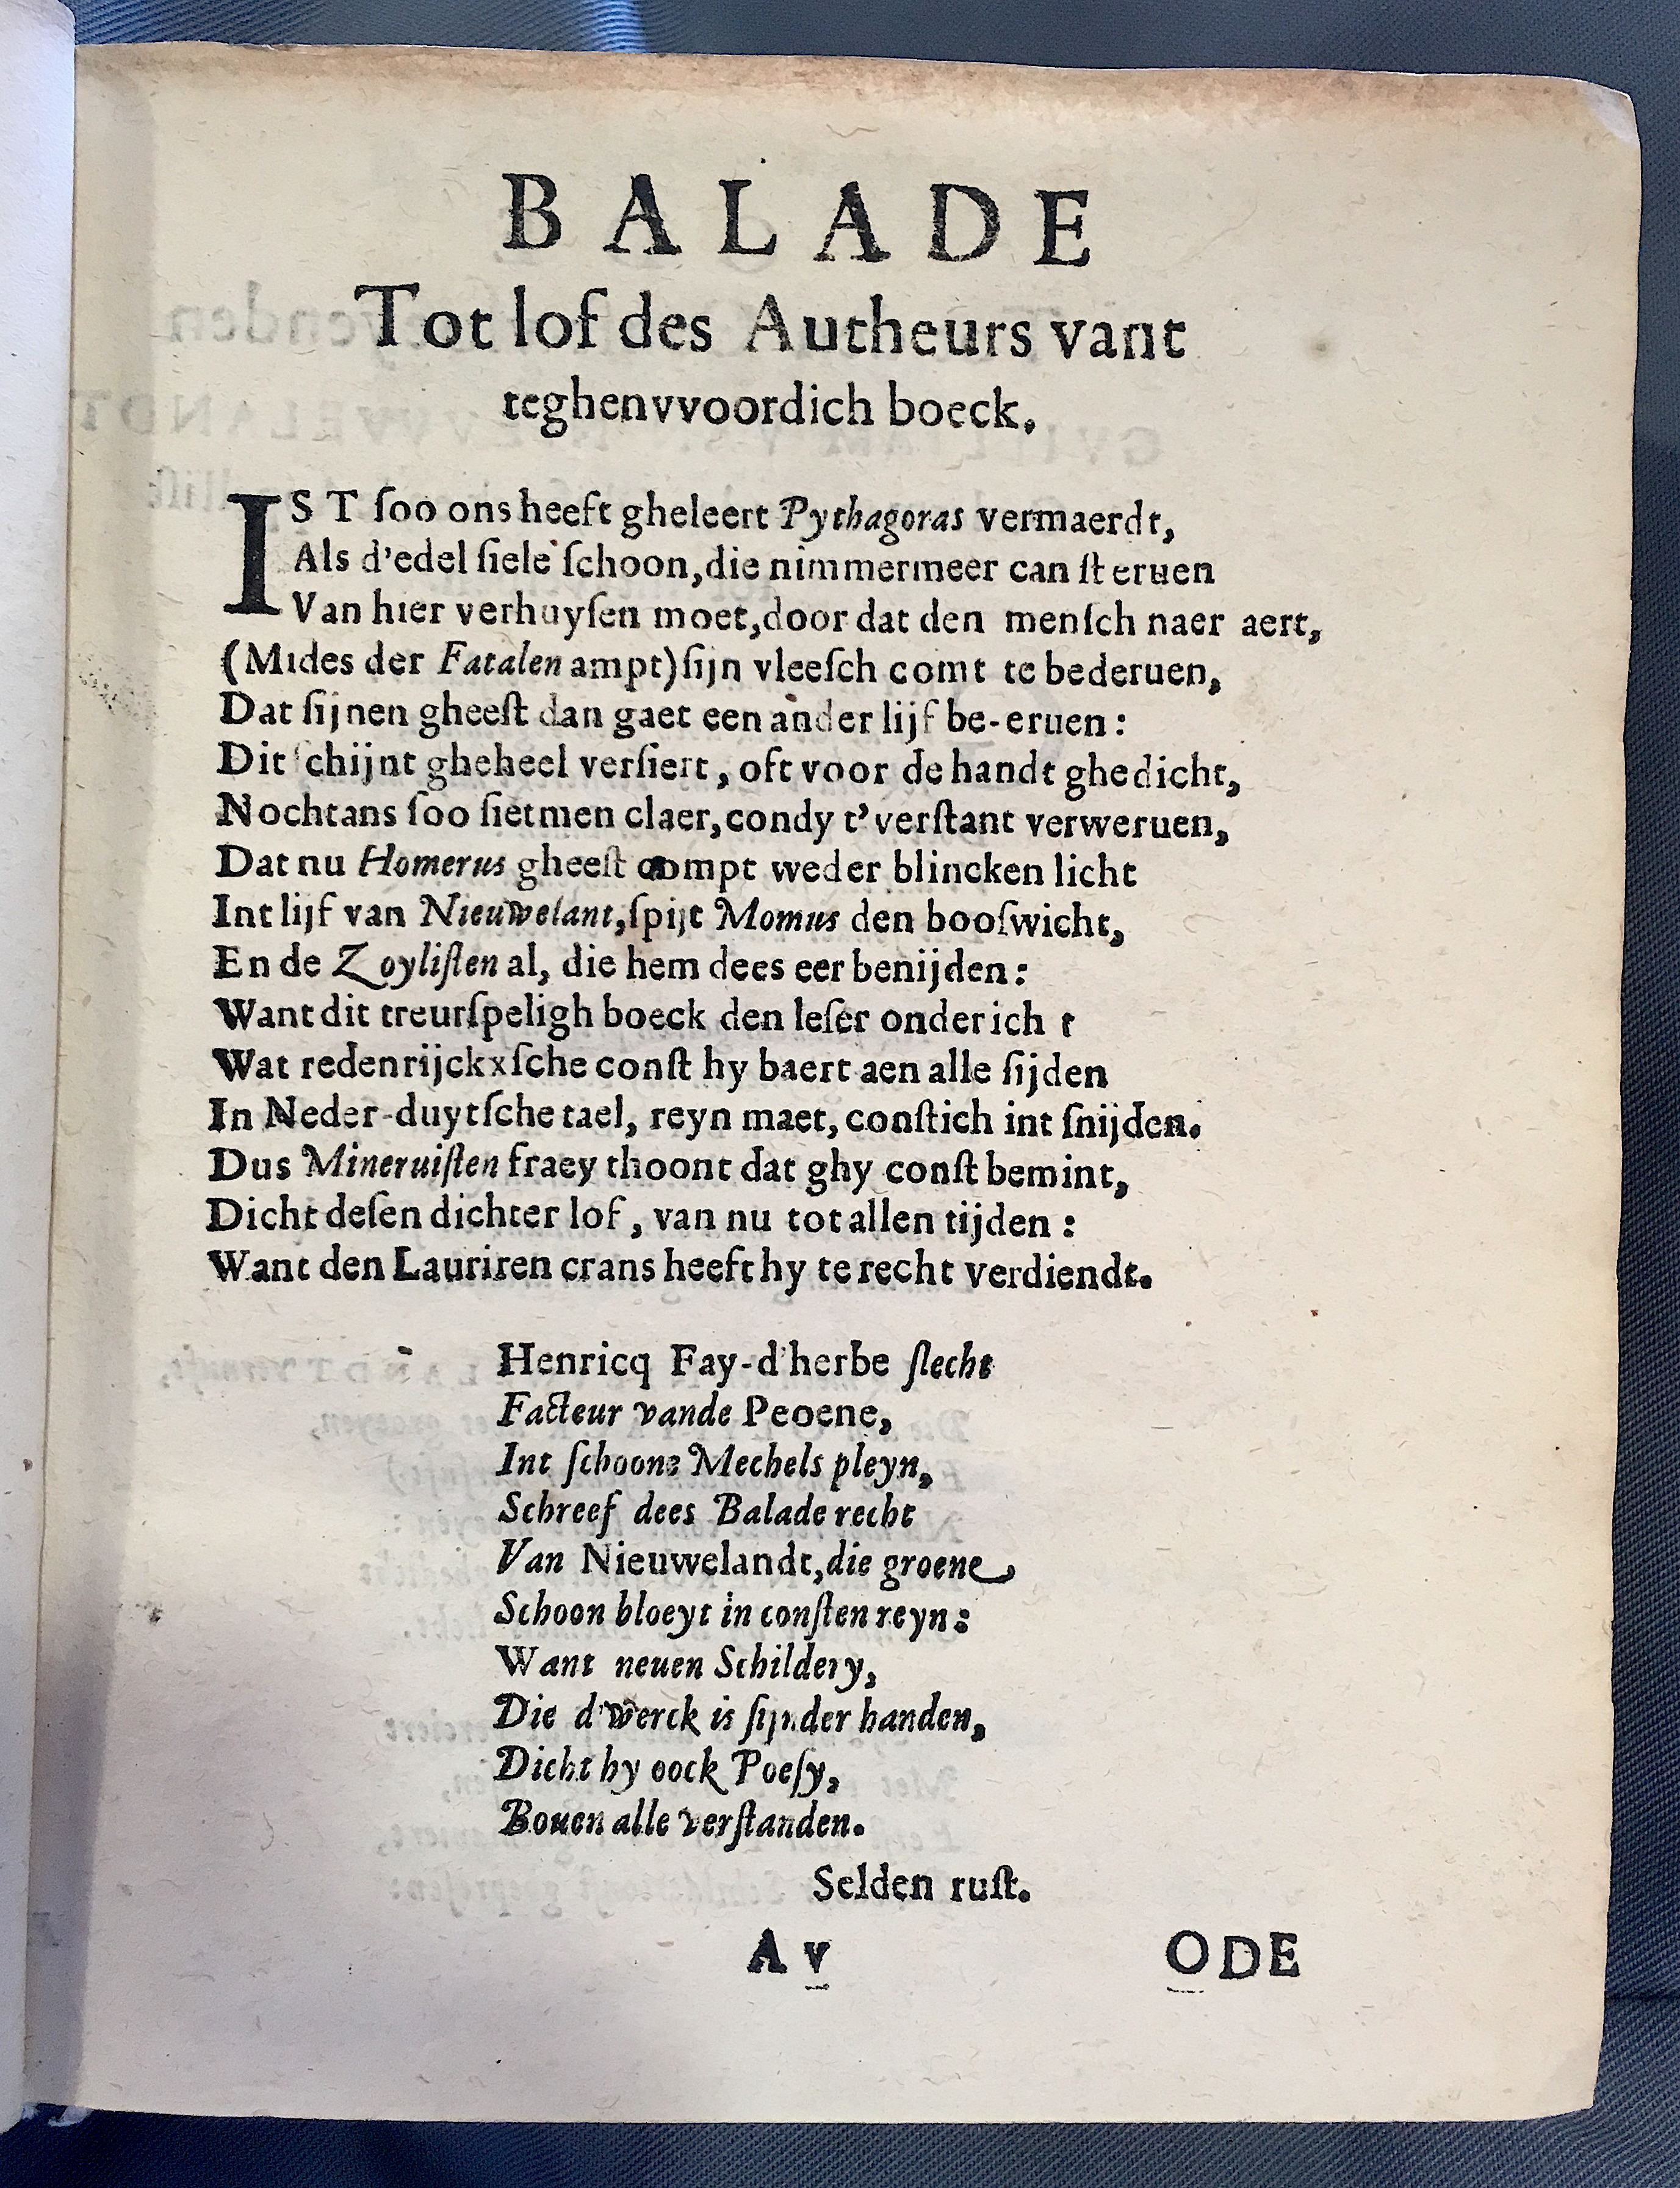 BALADE
Tot lof des Autheurs vant
teghenvvoordich boeck.
IST ſoo ons heeft gheleert Pythagoras vermaerdt,
Als d'edel ſiele ſchoon, die nimmermeer can ſteruen
Van hier verhuyſen moet, door dat den menſch naer aert,
(Mides der Fatalen ampt) ſijn vleeſch comt te bederuen,
Dat ſijnen gheeſt dan gaet een ander lijf be-eruen:
Dit ſchijnt gheheel verſiert, oft voor de handt ghedicht,
Nochtans ſoo ſietmen claer, condy t'verſtant verweruen,
Dat nu Homerus gheeſt compt weder blincken licht
Int lijf van Nieuwelant, ſpijt Momus den booſwicht,
En de Zoyliſten al, die hem dees eer benijden:
Want dit treurſpeligh boeck den leſer onderich t
Wat redenrijckxſche conſt hy baert aen alle ſijden
In Neder-duytſche tael, reyn maet, conſtich int ſnijden.
Dus Mineruiſten fraey thoont dat ghy conſt bemint,
Dicht deſen dichter lof, van nu tot allen tijden:
Want den Lauriren crans heeft hy te recht verdiendt.
Henricq Fay-d'herbe ſlecht
Facteur vande Peoene,
Int ſchoone Mechels pleyn,
Schreef dees Balade recht
Van Nieuwelandt, die groene
Schoon bloeyt in conſten reyn:
Want neuen Schildery,
Die d'werck is ſijnder handen,
Dicht hy oock Poeſy,
Bouen alle verſtanden.
Selden ruſt.
A v ODE